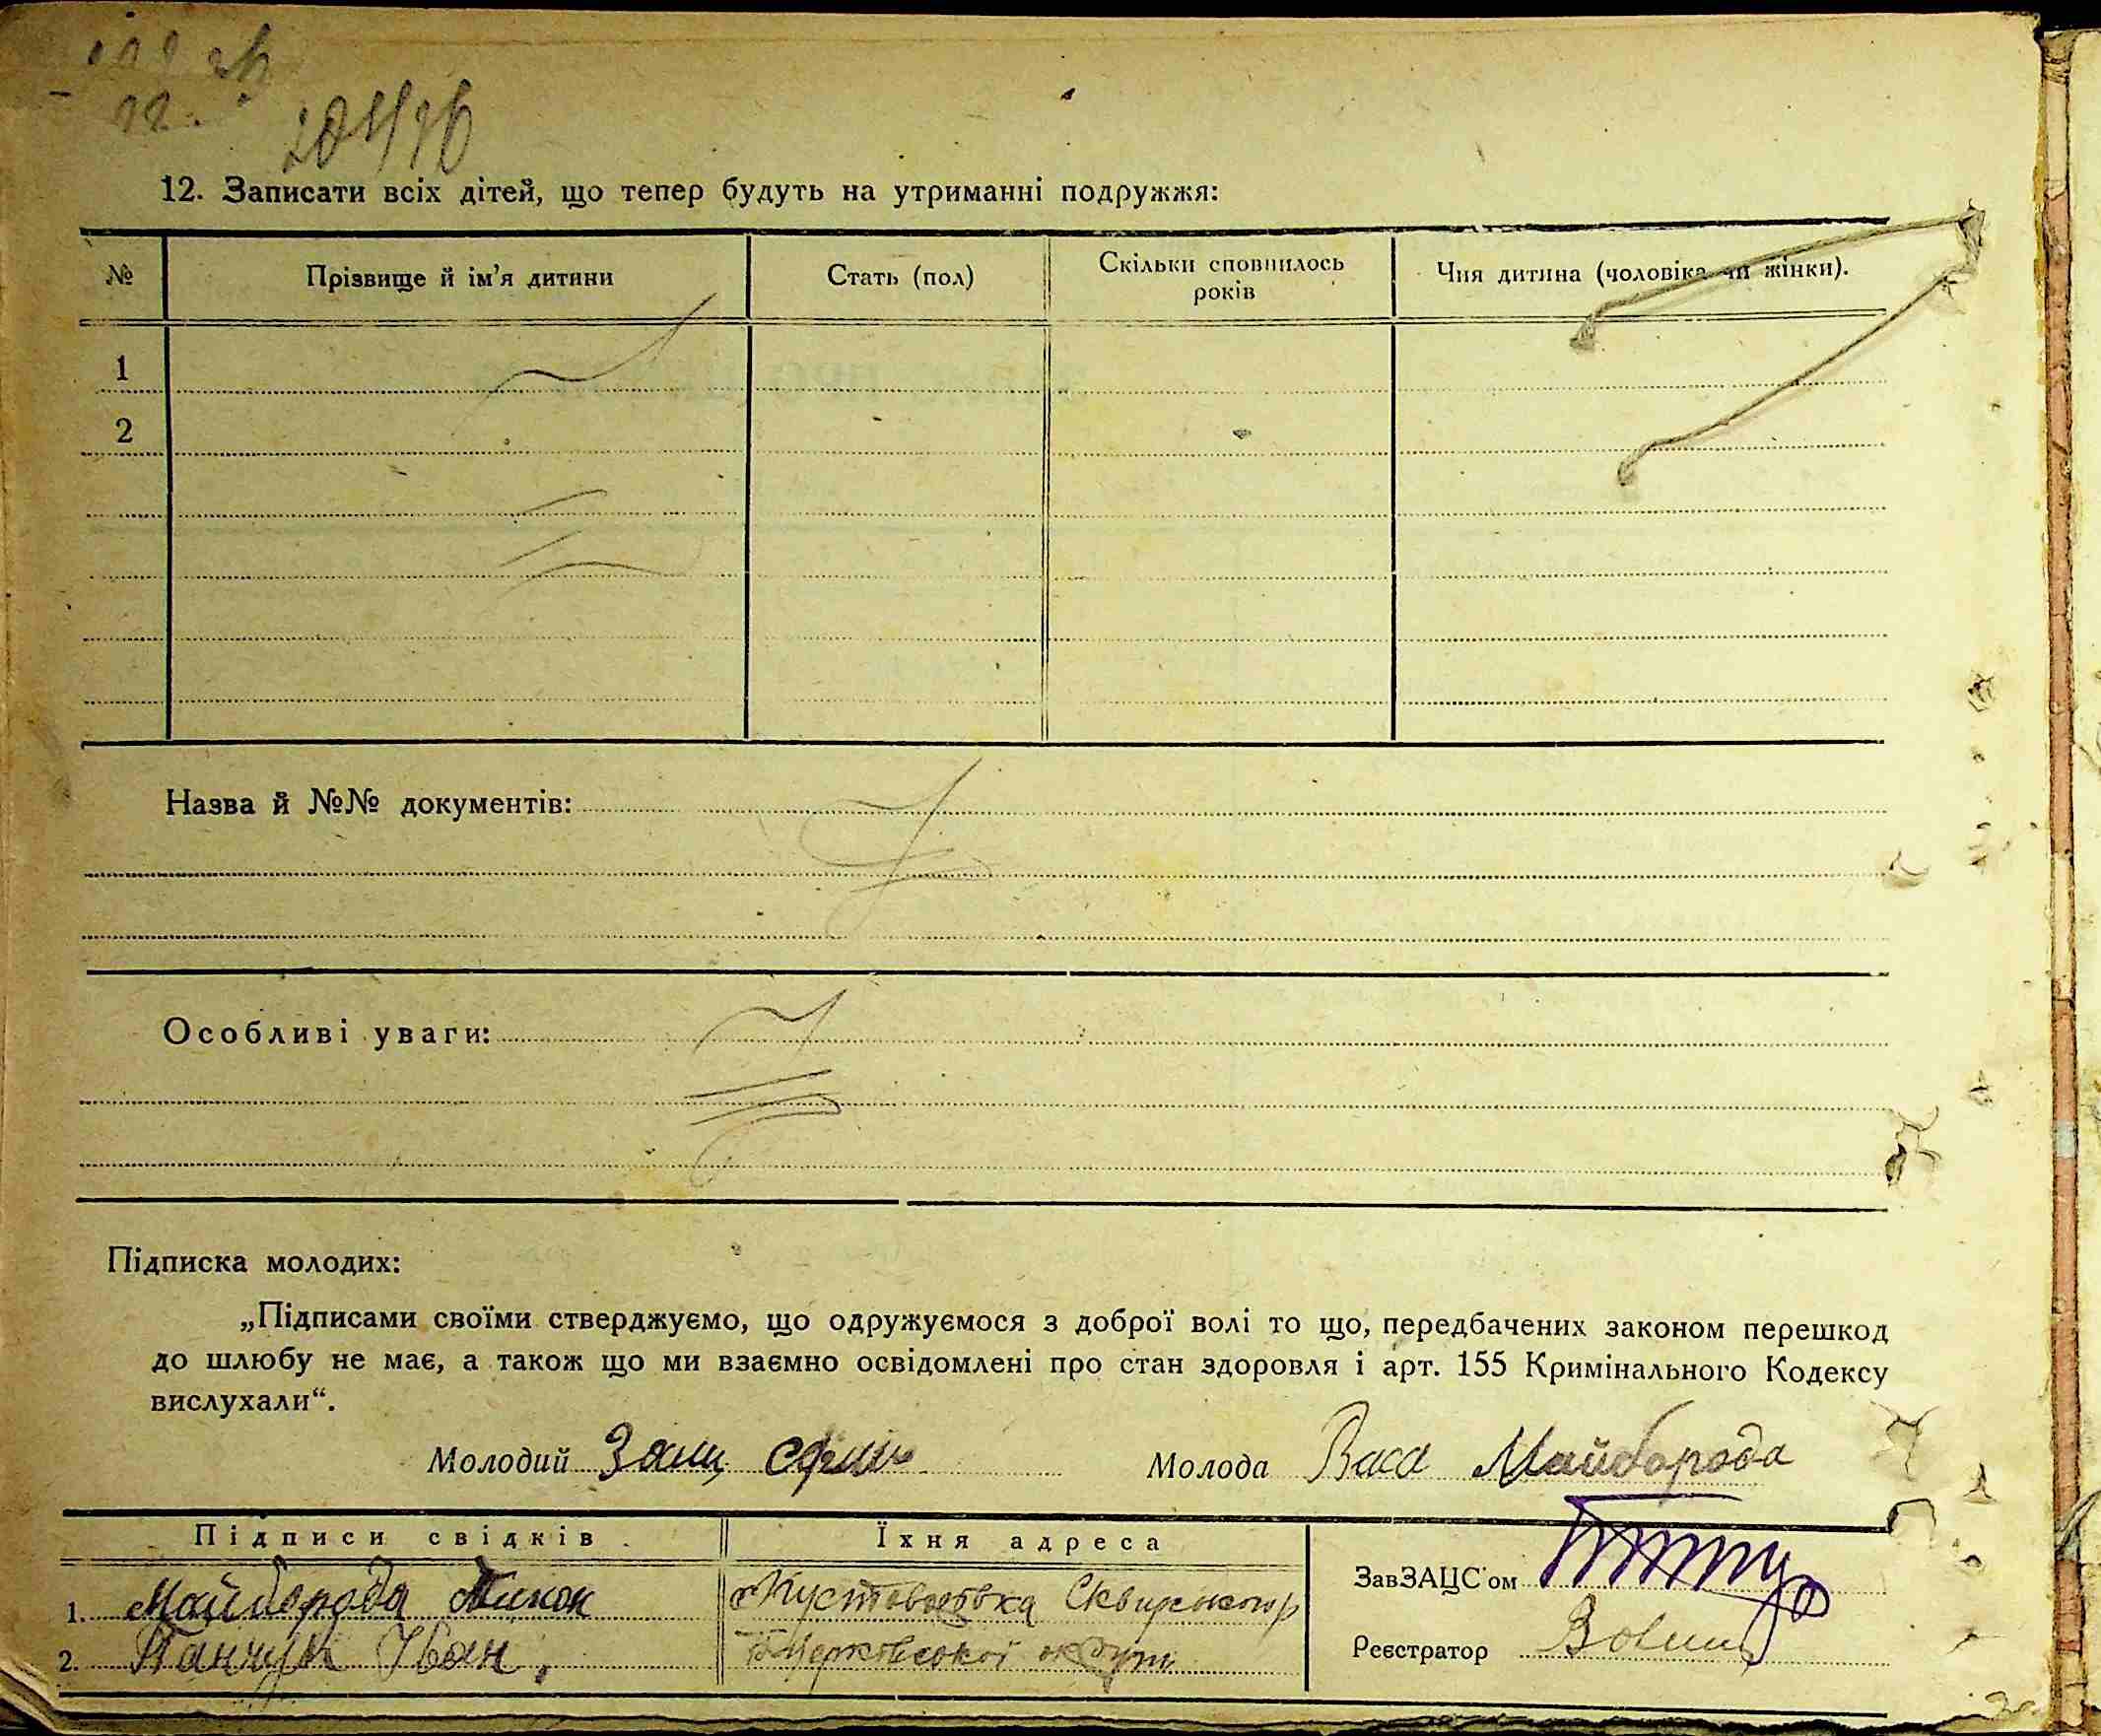 12. Записати всіх дітей, що тепер будуть на утриманні подружжя:
№ Прізвище й ім'я дитини Стать (пол) Скільки сповнилось років Чия дитина (чоловіка чи жінки).
1
2
Назва й №№ документів:
Особливі уваги:
Підписка молодих:
„Підписами своїми стверджуємо, що одружуємося з доброї волі то що, передбачених законом перешкод
до шлюбу не має, а також що ми взаємно освідомлені про стан здоровля і арт. 155 Кримінального Кодексу
вислухали“.
Молодий Заяц Молода Васа Майборода
Підписи свідків Їхня адреса
ЗавЗАЦС'ом
1. Майборода
2. Панчук Іван,
Реєстратор